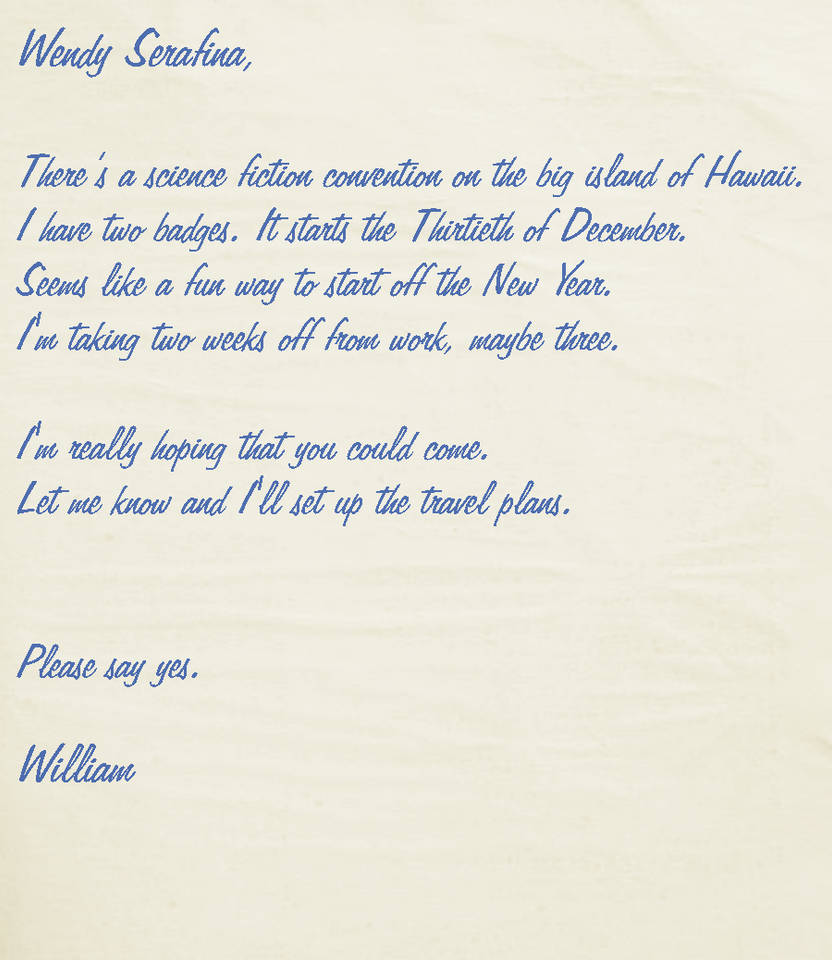 Wendy Serafina,
There's a science fiction convention on the big island of Hawaii.
I have two badges. It starts the Thirtieth of December.
Seems like a fun way to start off the New Year.
I'm taking two weeks off from work, maybe three.
I'm really hoping that you could come.
Let me know and I'll set up the travel plans.
Please say yes.
William